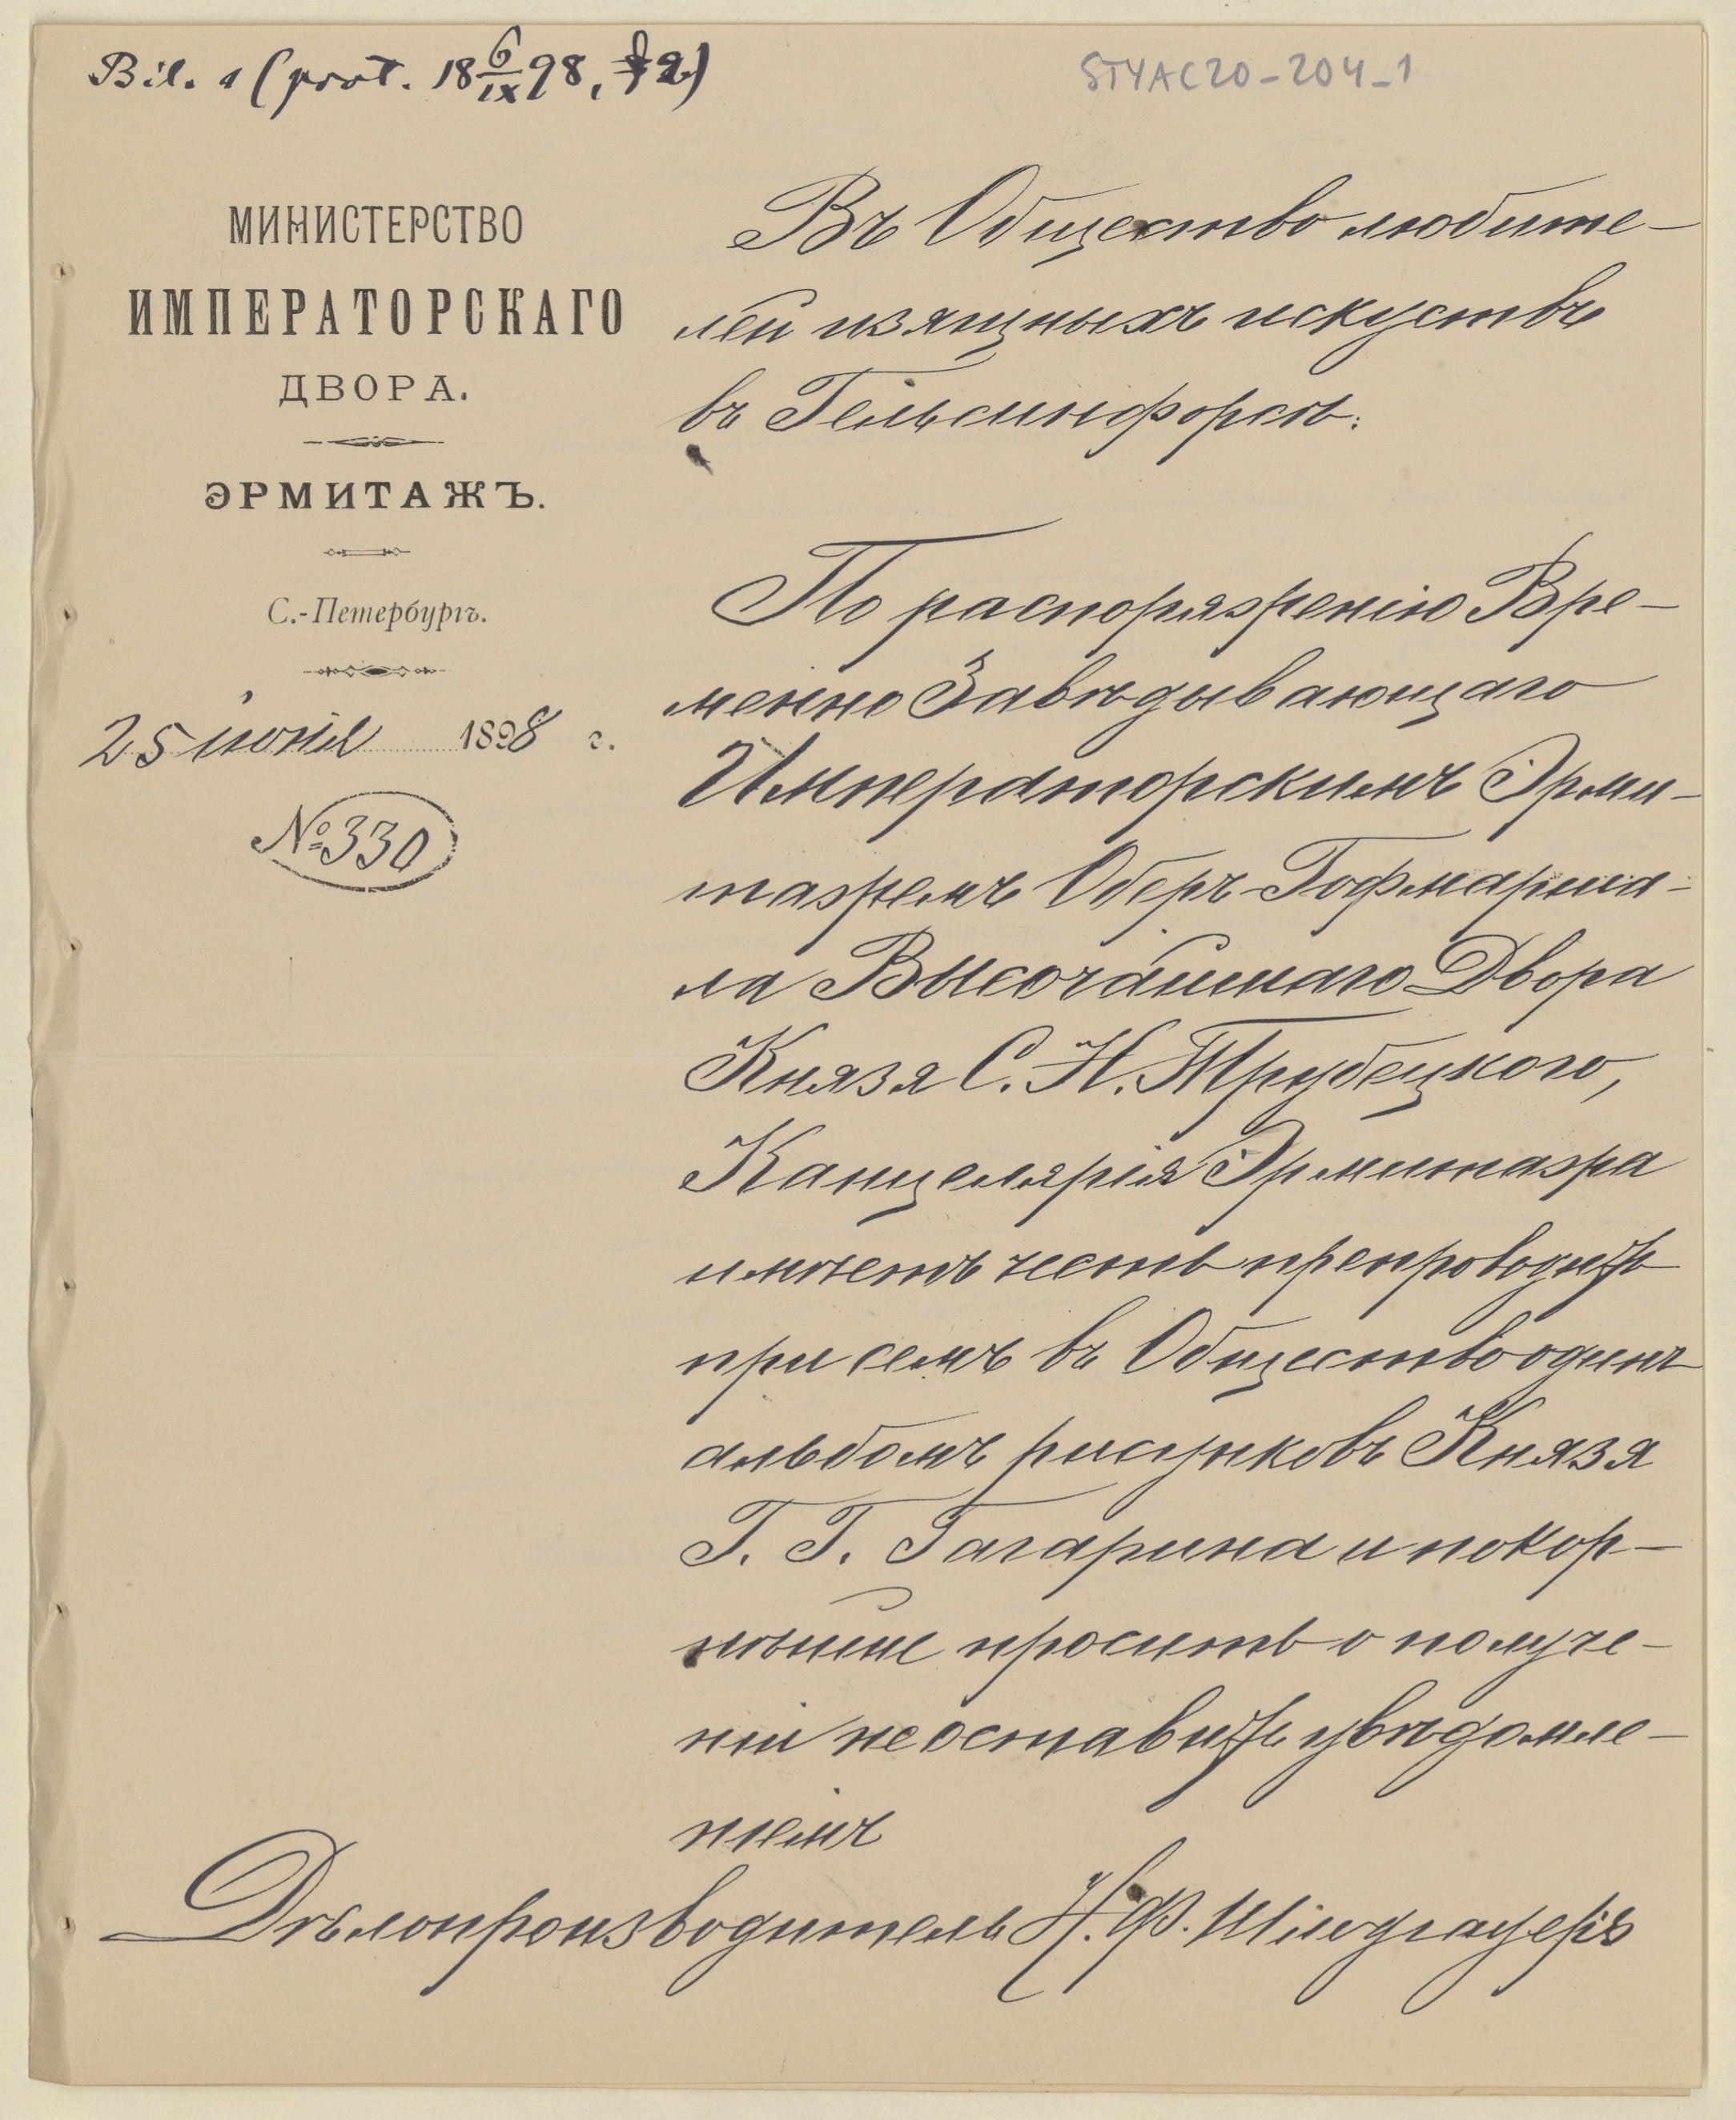 Bil. 1 (prot. 18 6/IX 98, § 2)
STYAC20-204-1
МИНИСТЕРСТВО
ИМПЕРАТОРСКАГО
ДВОРА.
ЭРМИТАЖЪ.
С.-Петербургъ.
25 іюня 1898 г.
№ 330
Въ Общество любите-
лей изящныхъ искуствъ
въ Гельсинфорсѣ.
По распоряженію Вре-
менно Завѣдывающаго
Императорскимъ Эрми-
тажемъ Оберъ-Гофмарша-
ла Высочайшаго Двора
Князя С. Н. Трубецкого,
Канцелярія Эрмитажа
имѣетъ честь препроводить
при семъ въ Общество одинъ
альбомъ рисунковъ Князя
Г. Г. Гагарина и покор-
нѣйше проситъ о получе-
ніи не оставить увѣдомле-
ніемъ
Дѣлопроизводитель Н. Ф.